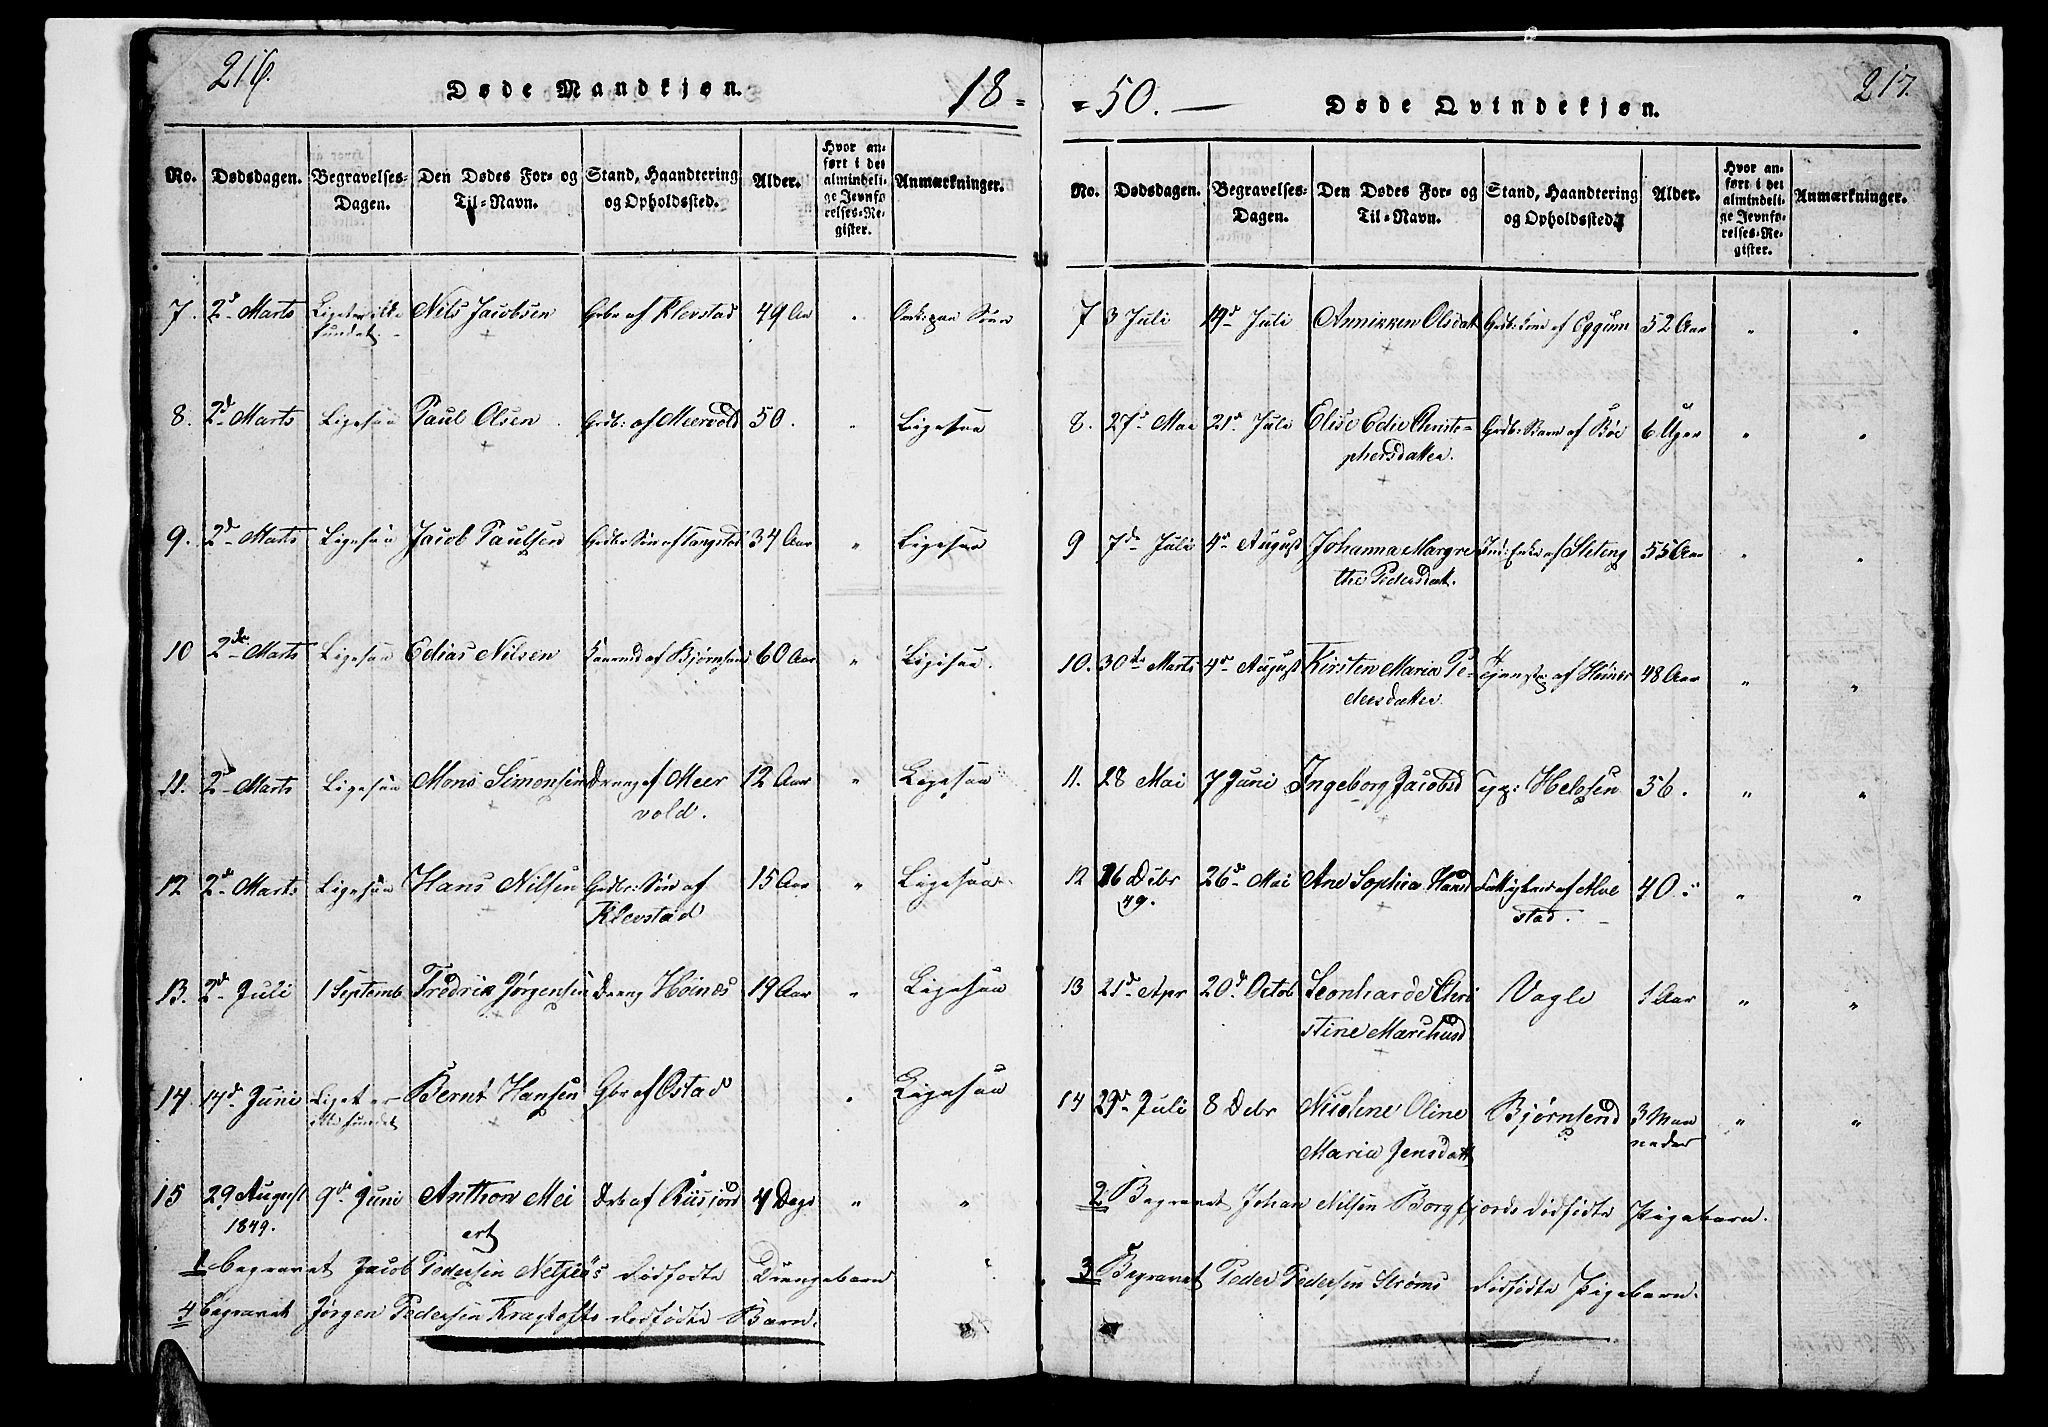 216.
Døde Mandkjøn.
18=
No. Dødsdagen. Begravelses-Dagen. Den Dødes For- og Til-Navn. Stand, Haandtering og Opholdssted. Alder. Hvor anført i det almindelige Jevnførelses-Register. Anmærkninger.
7. 2d Marts Liget er ikke fundet. Nils Jacobsen Grbr af Klevstad 49 Aar
8. 2d Marts Ligesaa Paul Olsen Grdb: af Meervold 50. Ligesaa
9. 2d Marts Ligesaa Jacob Paulsen 34 Aar " Ligesaa
10 2den Marts Ligesaa Edias Nilsen af Bjørnsand 60 Aar " Ligesaa.
11. 2d Marts Ligesaa Mons Simonsen Dreng af Meer 12 Aar " Ligesaa
vold.
12 2d Marts Ligesaa Hans Nilsen Grdbr: Søn af 15 Aar " Ligesaa
Klevstad
13. 2d Juli 1 Septemb Fredrik Jørgensen Dreng Høines 19 Aar " Ligesaa
14 14d Juni Liget er ikke fundet Bernt Hansen Gbr af Ostad Ligesaa
15 29 August 9de Juni Anthon Mei Drb af Riisjord 4 Dage " "
1849. ert
1 begravet Jacob Pedersen dødfødte Drengebarn "
4 begravet Jørgen Pedersen Kragtofts dødfødte Barn.
=50. —
Døde Qvindekjøn.
217.
No. Dødsdagen. Begravelses-Dagen. Den Dødes For- og Til-Navn. Stand, Haandtering og Opholdssted. Alder. Hvor anført i det almindelige Jevnførelses-Register. Anmærkninger.
7 3 Juli 19d Juli Annikken Olsdatt af Eggum 52 Aar " "
8. 27d Mai 21d Juli Elise Edie Christo- Grdb: Barn af Bøe 6 Uger " "
phersdatter.
9 7de Juli 4d August Johanna Margre Ind: Enke af Steteng 55 Aar " "
the Pedersdatt.
10. 30te Marts 4d August Kirsten Maria Pe- af Høines 48 Aar " "
dersdatter.
11. 28 Mai 7 Juni Ingeborg Jacobsd 56. " "
12 16 Debr 26d Mai Ane Sophia Hansd af Alve 40. " "
49. stad.
13 21d Apr 20d Octob Leonharde Chri Vagle 1 Aar " "
stine Marchusd
14 29d Juli 8 Debr Nicoline Oline Bjørnsend 3 Maa " "
Maria Jensdatt neder
2 Begravet Johan Nilsen Borgfjords dødfødte Pigebarn.
3 Begravet Peder Pedersen Strøms dødfødte Pigebarn.